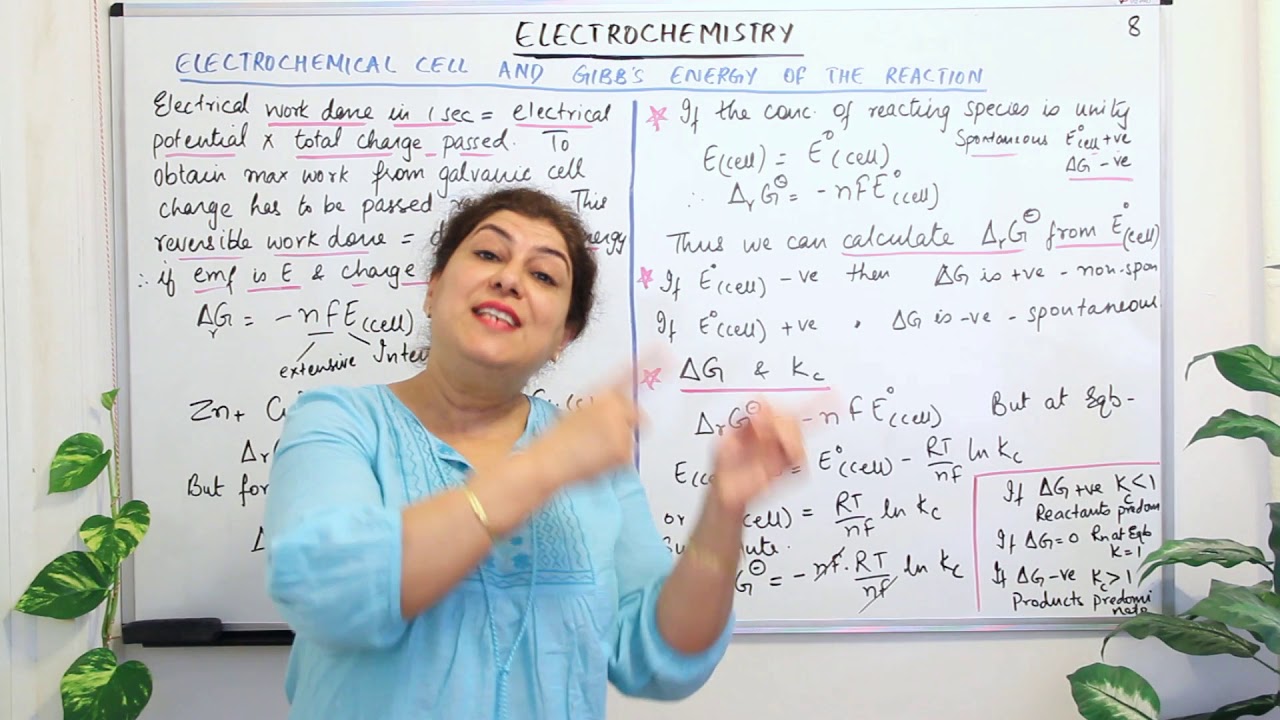 ELECTROCHEMISTRY
8
ELECTROCHEMICAL CELL AND GIBB'S ENERGY OF THE REACTION
Electrical work done in 1 sec = electrical
potential x total charge passed. To
obtain max work from galvanic cell
charge has to be passed This
reversible work done =
∴ if emf is E & charge
ΔrG = - nfE(cell)
extensive
Zn +
But for
☆ If the conc. of reacting species is unity
E(cell) = E°(cell)
Spontaneous E°cell +ve
ΔG -ve
∴ ΔrG⊖ = - nfE°(cell)
Thus we can calculate ΔrG⊖ from E°(cell)
☆ If E°(cell) -ve then ΔG is +ve - non-spon
If E°(cell) +ve , ΔG is -ve - spontaneous
☆ ΔG & Kc
ΔrG⊖ - nfE°(cell) But at Eqb -
= E°(cell) - RT/nf ln Kc
or (cell) = RT/nf ln Kc
G⊖ = - nf . RT/nf ln Kc
If ΔG +ve Kc < 1
Reactants predom
If ΔG = 0 Rn at Eqb
K = 1
If ΔG -ve Kc > 1
Products predomi
nate